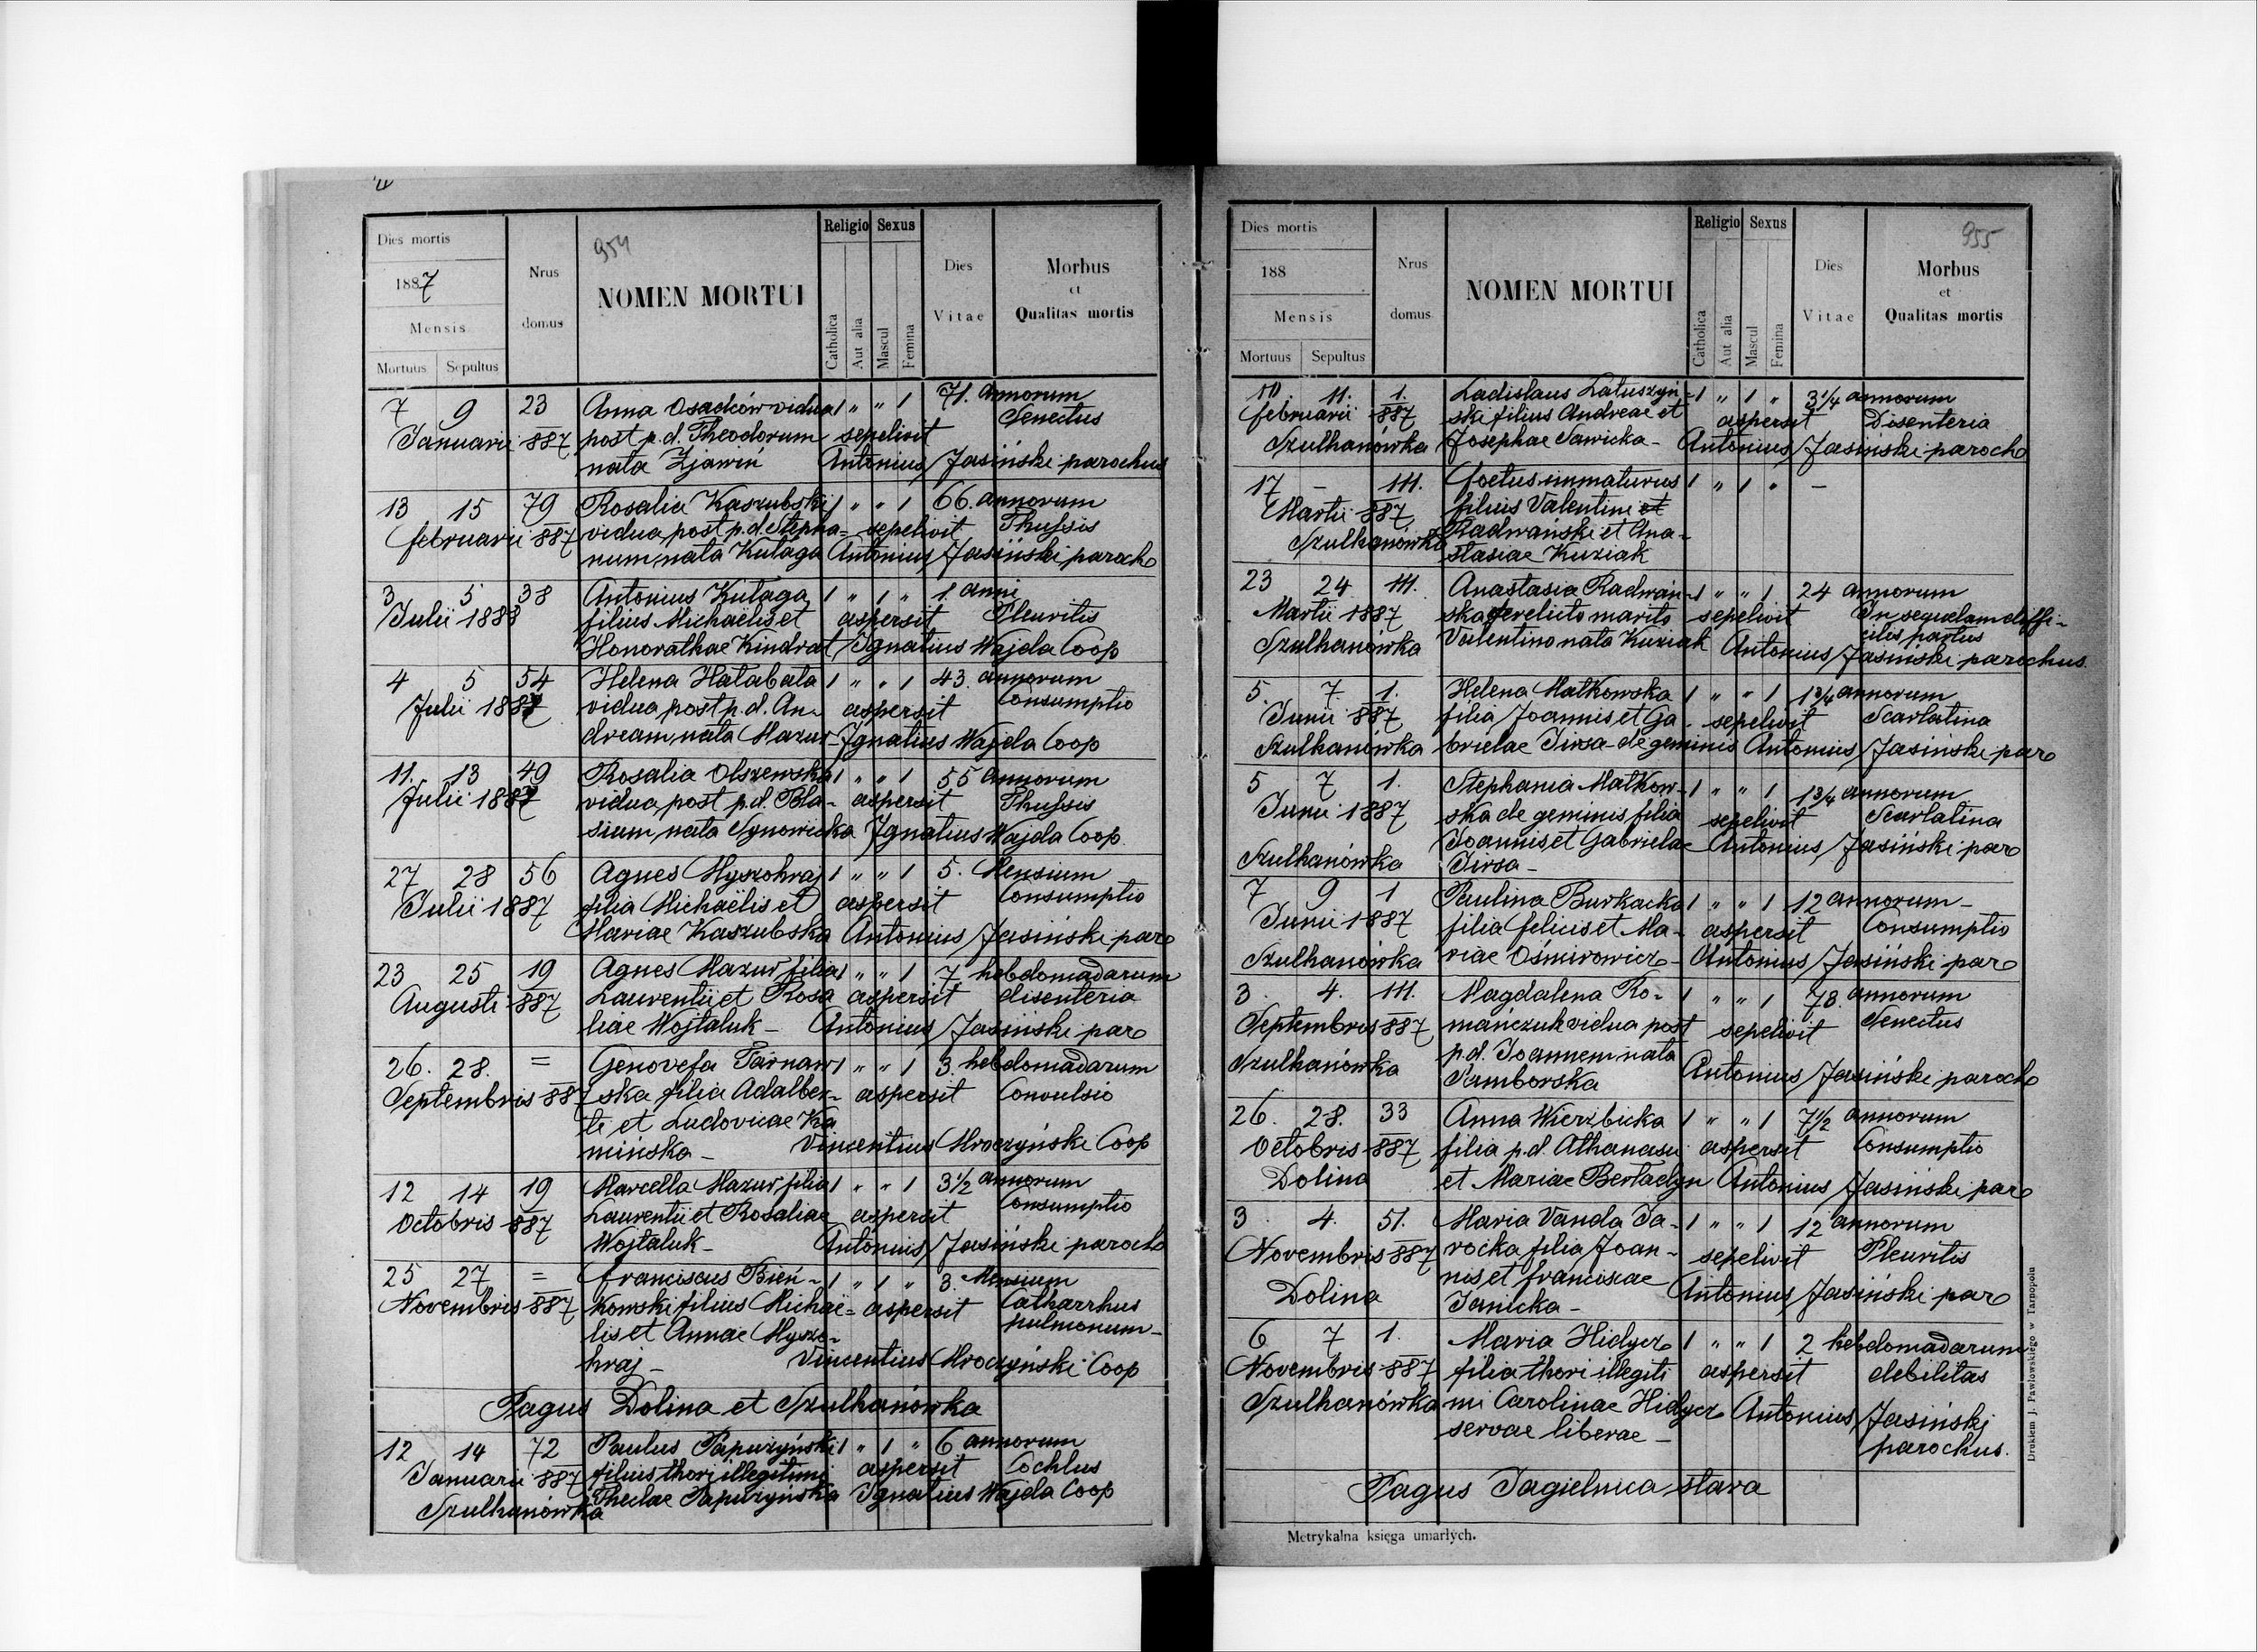 954
Dies mortis
1887
Mensis
Mortuus Sepultus
Nrus domus
NOMEN MORTUI
Religio Sexus
Catholica Aut alia Mascul Femina
Dies Vitae
Morbus et Qualitas mortis
7 9 23 Anna Osadców vidua 1 " " 1 71. annorum
Januarii 887 post p.d. Theodorum sepelivit Senectus
nata Zjawiń Antonius Jasiński parochus
13 15 79 Rosalia Kaszubski 1 " " 1 66. annorum
februarii 887 vidua post p.d. Stepha= sepelivit Thyssis
num, nata Kutaga Antonius Jasiński paroch
3 5 38 Antonius Kutaga 1 " 1 " 1. anni
Julii 188 filius Michaëlis et aspersit Pleuritis
Honorathae Kindrat Ignatius Wajda Coop
4 5 54 Helena Hatabata 1 " " 1 43. annorum
Julii 1887 vidua post p.d. An- aspersit Consumptio
dream, nata Mazur - Ignatius Wajda Coop
11. 13 49 Rosalia Olszewska 1 " " 1 55 annorum
Julii 1887 vidua post p.d. Bla- aspersit Thyssis
sium, nata Synowicka Ignatius Wajda Coop.
27 28 56 Agnes Myszohraj 1 " " 1 5. Mensium
Julii 1887 filia Michaëlis et aspersit Consumptio
Mariae Kaszubska Antonius Jasiński par
23 25 19 Agnes Mazur filia 1 " " 1 7. hebdomadarum
Augusti 887 Laurentii et Rosa aspersit disenteria
liae Wojtaluk - Antonius Jasiński par
26. 28. = Genovefa Tarnaw 1 " " 1 3. hebdomadarum
Septembris 887 ska filia Adalber- aspersit Convulsio
ti et Ludovicae Ka
mińska - Vincentius Mroczyński Coop
12 14 19 Marcella Mazur filia 1 " " 1 3 1/2 annorum
Octobris 887 Laurentii et Rosaliae aspersit Consumptio
Wojtaluk - Antonius Jasiński paroch
25 27 = Franciscus Bień- 1 " 1 " 3. Mensium
Novembris 887 kowski filius Michaë- aspersit Catharrhus
lis et Annae Myszo- pulmonum -
hraj - Vincentius Mroczyński Coop
Pagus Dolina et Szulhanówka
12 14 72 Paulus Papuzyński 1 " 1 " 6 annorum
Januarii 887 filius thori illegitimi aspersit Cochlus
Szulhanówka Theclae Papuzyńska Ignatius Wajda Coop
955
Dies mortis
188
Mensis
Mortuus Sepultus
Nrus domus
NOMEN MORTUI
Religio Sexus
Catholica Aut alia Mascul Femina
Dies Vitae
Morbus et Qualitas mortis
10. 11. 1. Ladislaus Latuszyń- 1 " 1 " 3 1/4 annorum
februarii 887 ski filius Andreae et aspersit Disenteria
Szulhanówka Josephae Sawicka - Antonius Jasiński paroch
17 - 111. foetus immaturus 1 " 1 " -
Martii 887 filius Valentini et
Szulhanówka Radwański et Ana-
stasiae Kuziak
23 24 111. Anastasia Radwań- 1 " " 1 24 annorum
Martii 1887 ska derelicto marito sepelivit In sequelam diffi-
cilis partus
Szulhanówka Valentino nata Kuziak Antonius Jasiński parochus
5. 7 1. Helena Matkowska 1 " " 1 1 3/4 annorum
Junii 887 filia Joannis et Ga- sepelivit Scarlatina
Szulhanówka brielae Jirsa - de geminis Antonius Jasiński par
5 7 1. Stephania Matkow- 1 " " 1 1 3/4 annorum
Junii 1887 ska de geminis filia sepelivit Scarlatina
Joannis et Gabrielae Antonius Jasiński par
Szulhanówka Jirsa -
7 9 1 Paulina Burkacka 1 " " 1 12 annorum -
Junii 1887 filia felicis et Ma- aspersit Consumptio
Szulhanówka riae Ośmirowicz - Antonius Jasiński par
3. 4. 111. Magdalena Ro- 1 " " 1 78. annorum
Septembris 887 mańczuk vidua post sepelivit Senectus
Szulhanówka p.d. Joannem nata
Samborska Antonius Jasiński paroch
26. 28. 33 Anna Wierzbicka 1 " " 1 7 1/2 annorum
Octobris 887 filia p.d. Athanasii aspersit Consumptio
Dolina et Mariae Bertadyn Antonius Jasiński par
3. 4. 51. Maria Vanda Ja- 1 " " 1 12 annorum
Novembris 887 rocka filia Joan- sepelivit Pleuritis
nis et franciscae Antonius Jasiński par
Dolina Janicka -
6 7 1. Maria Hidycz 1 " " 1 2 hebdomadarum
Novembris 887 filia thori illegiti aspersit debilitas
Szulhanówka mi Carolinae Hidycz Antonius Jasiński
servae liberae - parochus.
Pagus Jagielnica stara
Metrykalna księga umarłych.
Drukiem J. Pawłowskiego w Tarnopolu